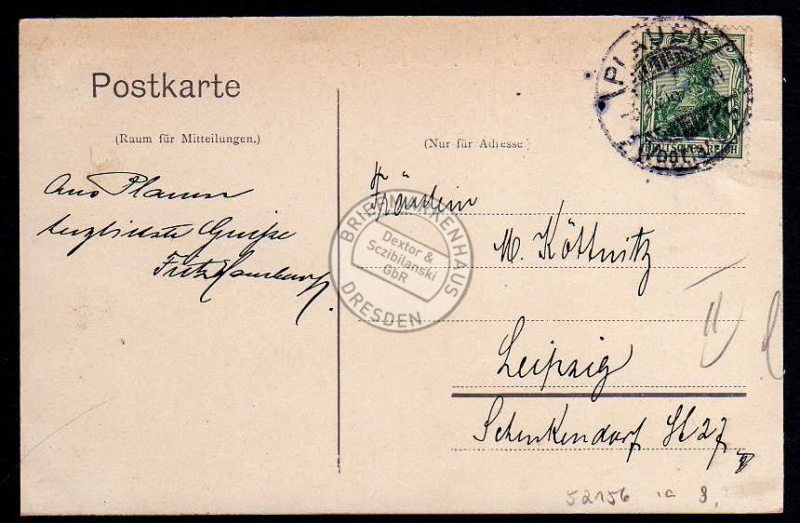 Postkarte
(Raum für Mitteilungen.)
(Nur für Adresse)
PLAUEN
DEUTSCHES REICH
Aus Plauen
herzlichste Grüße
Fritz
Fräulein
M. Köttnitz
Leipzig
Schenkendorf St 27
BRIEFMARKENHAUS
Dextor &
Sczibilanski
GbR
DRESDEN
52156 8.